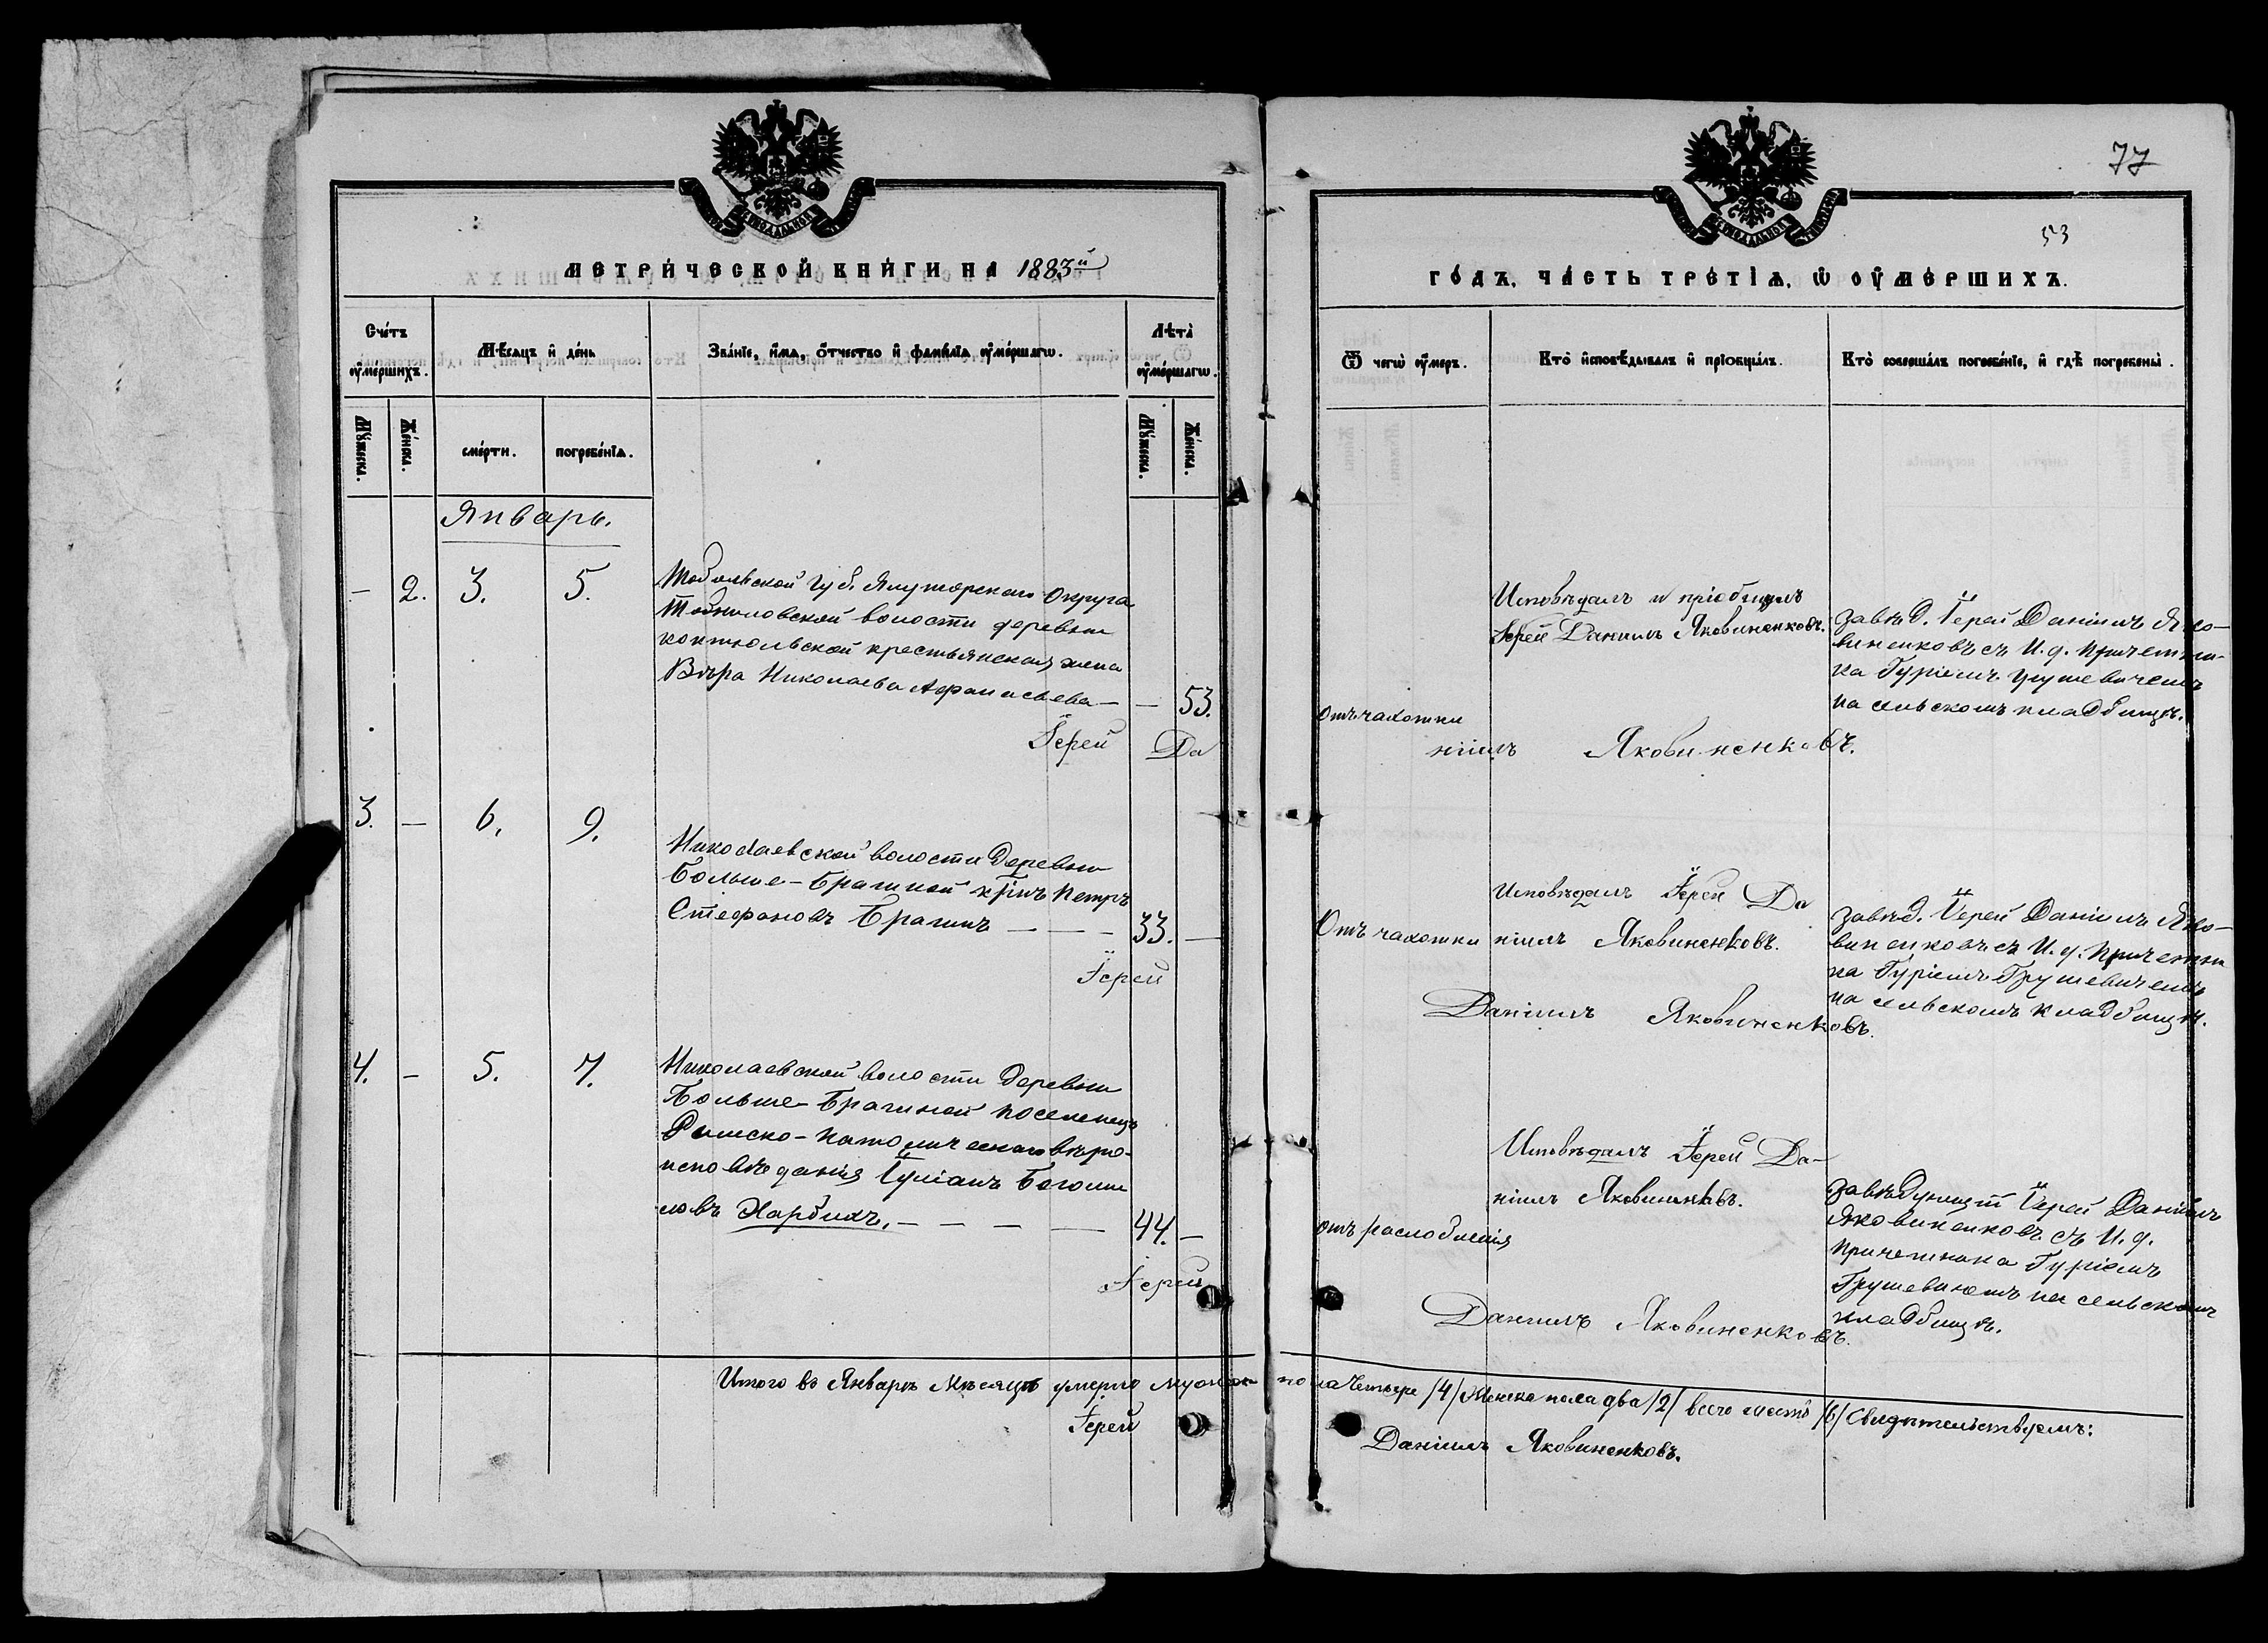 МЕТРИЧЕСКОЙ КНИГИ НА 1883й
Счетъ умершихъ.
Мѣсяцъ и день
Званіе, имя, отчество и фамилія умершагѡ.
Лѣта умершагѡ.
Мужеска.
Женска.
смерти.
погребенія.
Мужеска.
Женска.
Январь.
- 2. 3. 5.
Тобольской Губ. Ялуторскаго Округа
волости деревни
крестьянская жена
Вѣра Николаева Афанасьева —
— 53.
Іерей Да
3. — 6. 9.
Николаевской волости Деревни
Больше-Брагиной кр͠інъ Петръ
Стефановъ Брагинъ — — —
33. —
Іерей
4. — 5. 7.
Николаевской волости Деревни
Больше-Брагиной поселенецъ
Римско-католическаго вѣро-
исповѣданія Іуліанъ Богоми
ловъ Харбихъ. — — — —
44. —
Іерей
Итого въ Январѣ мѣсяцѣ умерло мужеск
Іерей
77
53
ГОДЪ, ЧАСТЬ ТРЕТІЯ, Ѡ УМЕРШИХЪ.
Ѿ чегѡ умеръ.
Кто исповѣдывалъ и пріобщалъ.
Кто совершалъ погребеніе, и гдѣ погребены.
Отъ чахотки
Исповѣдалъ и пріобщилъ
Іерей Даніилъ Яковиненковъ.
завѣд. Іерей Даніилъ Яко-
виненковъ съ И. д. Причетни-
ка Гуріемъ
на сельскомъ кладбищѣ.
ніилъ Яковиненковъ.
Отъ чахотки
Исповѣдалъ Іерей Да
ніилъ Яковиненковъ.
завѣд. Іерей Даніилъ Яко-
виненковъ съ И. д. Причетни
ка Гуріемъ Грушевичемъ
на сельскомъ кладбищѣ.
Даніилъ Яковиненковъ.
отъ разслабленія
Исповѣдалъ Іерей Да-
ніилъ Яковиненковъ.
завѣдующій Іерей Даніилъ
Яковиненковъ съ И. д.
Причетника Гуріемъ
Грушевичемъ на сельскомъ
кладбищѣ.
Даніилъ Яковиненковъ.
пола четыре /4/ Женска пола два /2/ всего шесть /6/ Свидѣтельствуемъ:
Даніилъ Яковиненковъ.